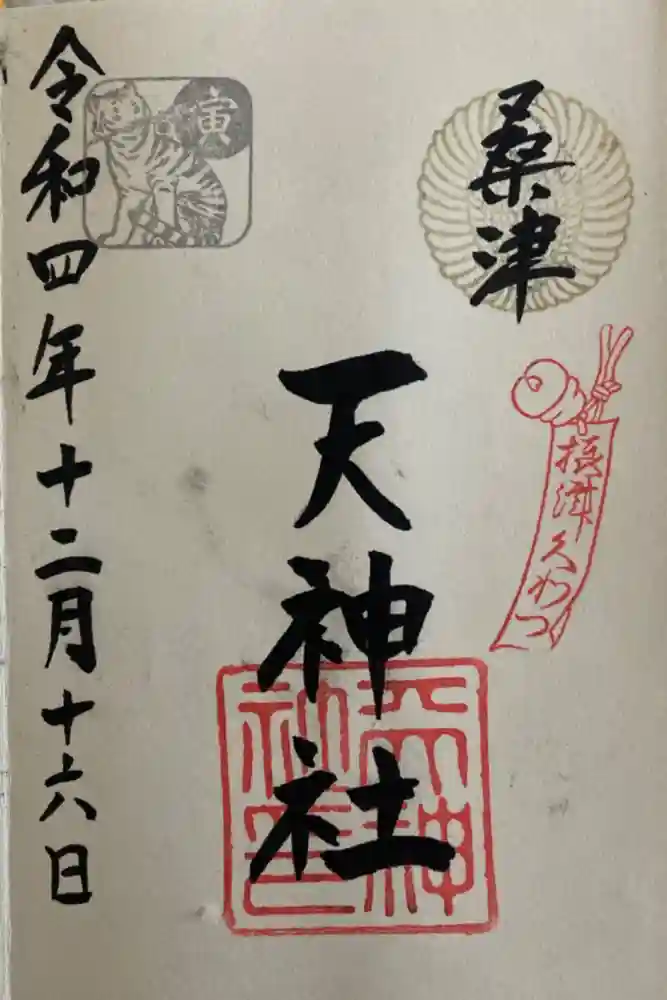 桑津
摂津 くわつ
天神社
天神社印
令和四年十二月十六日
寅